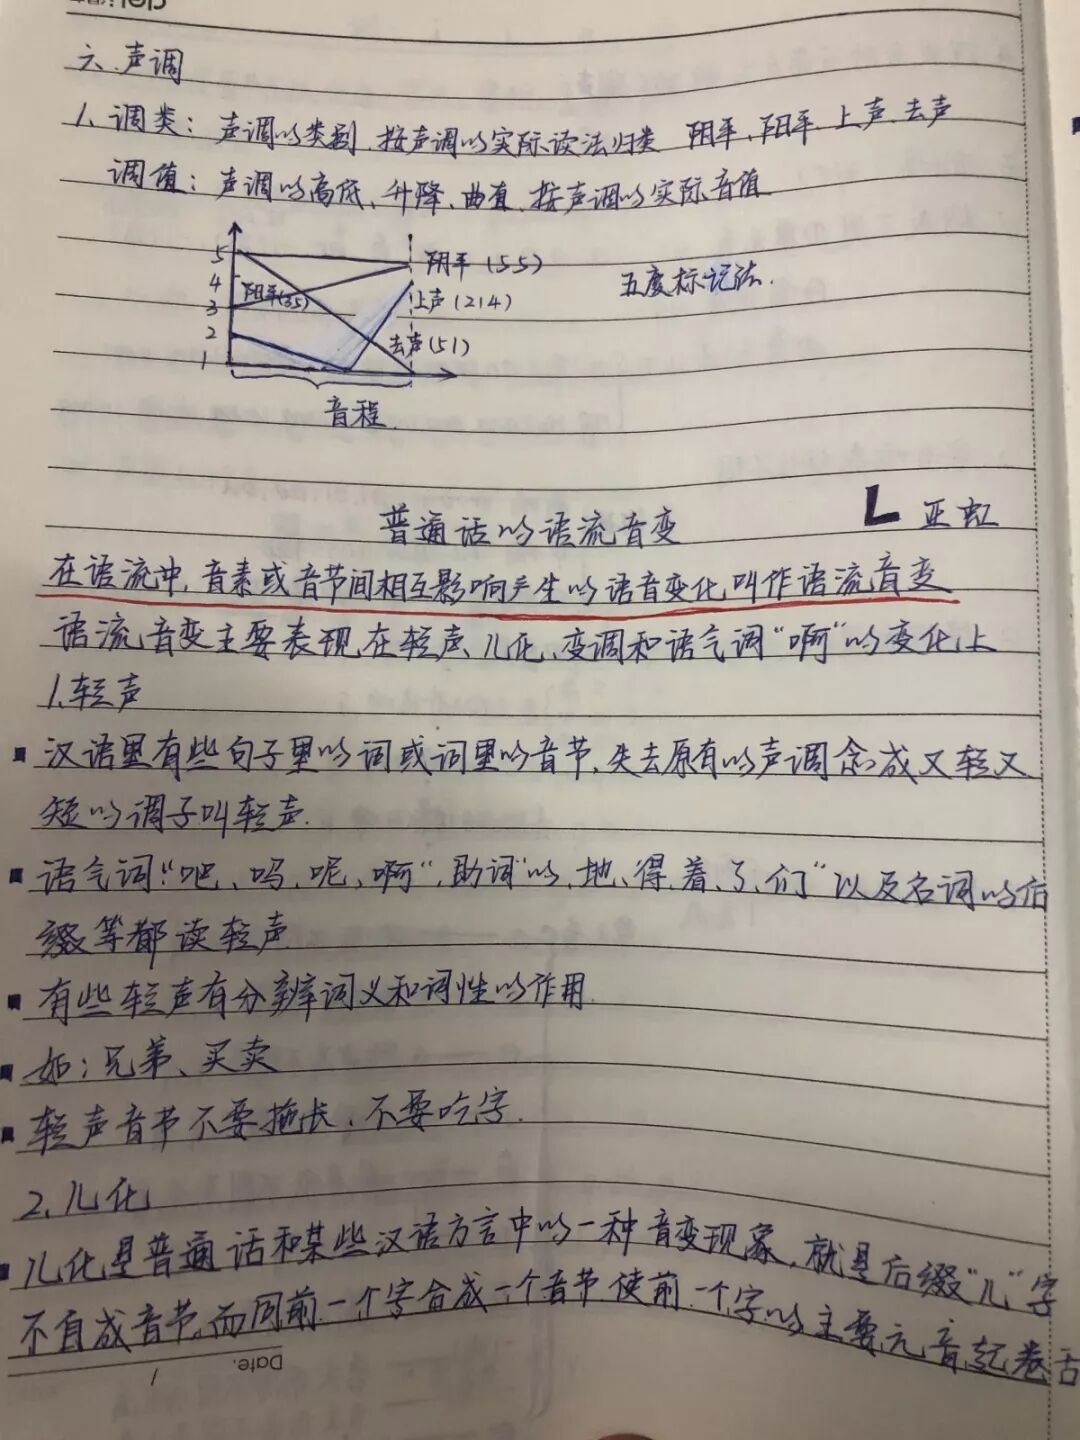 六、声调
1、调类：声调的类别,按声调的实际读法归类 阴平、阳平、上声、去声
调值：声调的高低、升降、曲直,按声调的实际音值
5
4
3
2
1
阴平(55)
阳平(35)
上声(214)
去声(51)
音程
五度标记法.
普通话的语流音变
L 亚虹
在语流中,音素或音节间相互影响产生的语音变化,叫作语流音变
语流音变主要表现在轻声、儿化、变调和语气词"啊"的变化上
1、轻声
汉语里有些句子里的词或词里的音节,失去原有的声调念成又轻又
短的调子叫轻声.
语气词"吧、吗、呢、啊",助词"的、地、得、着、了、们"以及名词的后
缀等都读轻声
有些轻声有分辨词义和词性的作用.
如：兄弟、买卖
轻声音节不要拖长、不要吃字.
2、儿化
儿化是普通话和某些汉语方言中的一种音变现象,就是后缀"儿"字
不自成音节,而同前一个字合成一个音节使前一个字的主要元音起卷舌
Date.